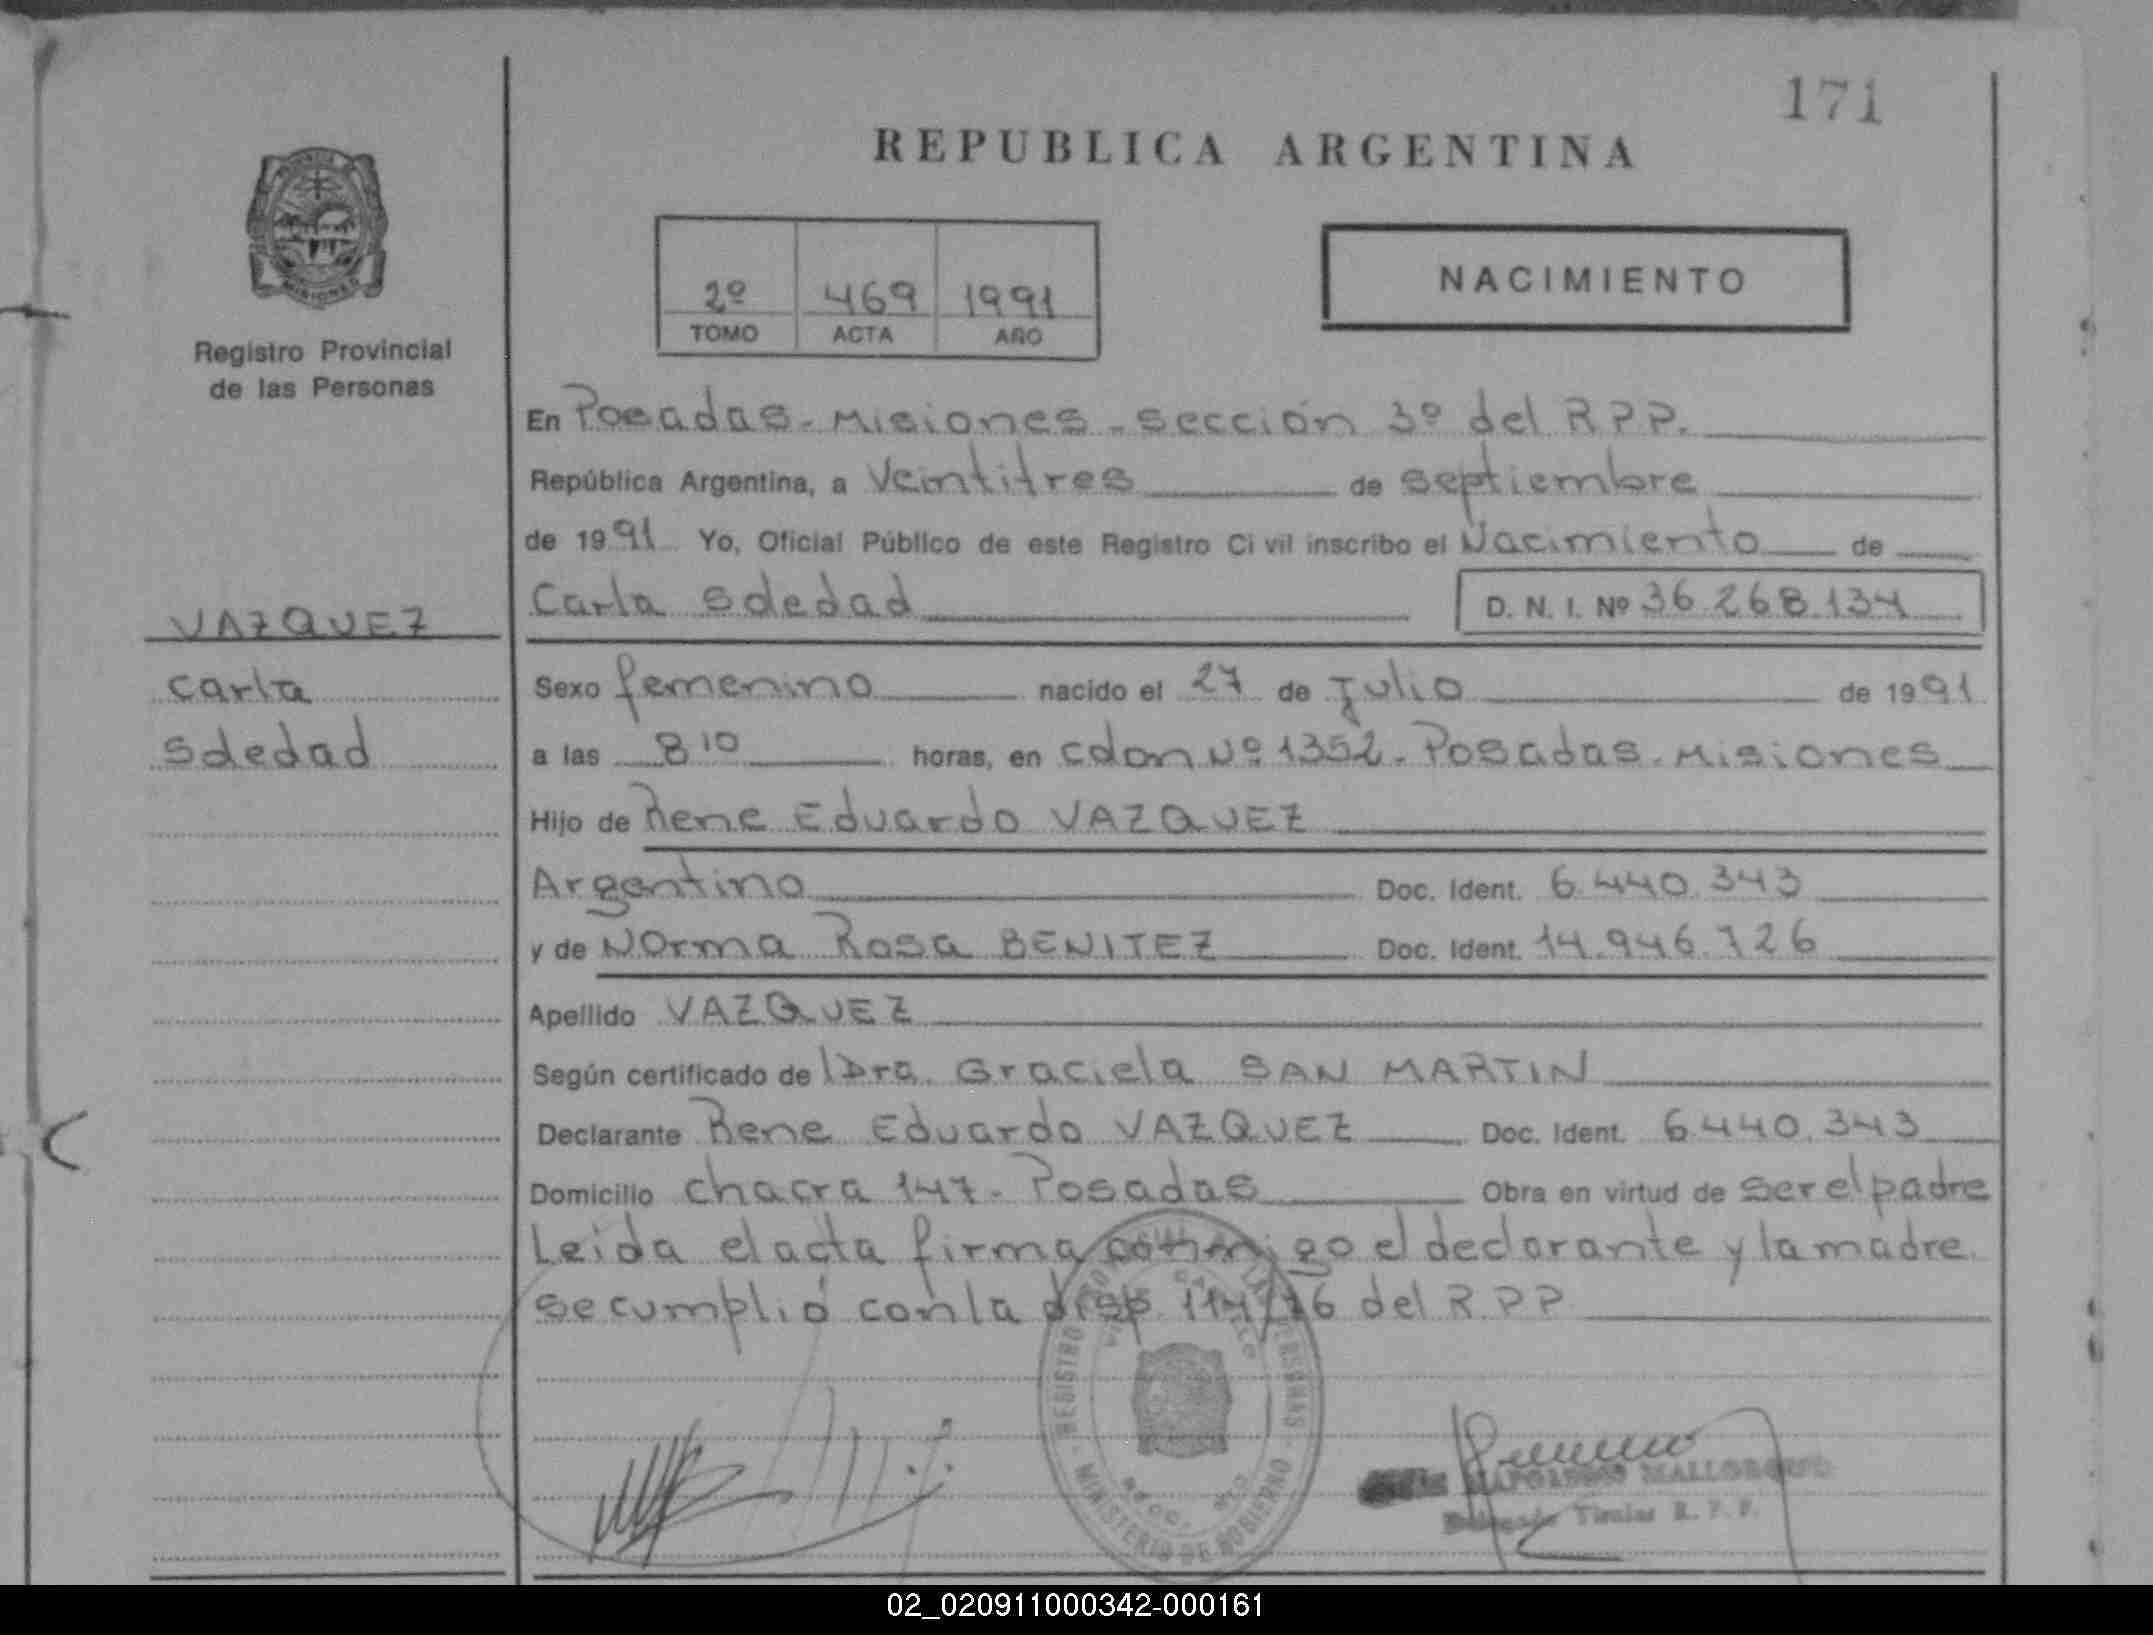 171
REPUBLICA ARGENTINA
MISIONES
Registro Provincial
de las Personas
2º 469 1991
TOMO ACTA AÑO
NACIMIENTO
En Posadas - Misiones - sección 3º del R P P.
República Argentina, a Veintitres de septiembre
de 1991 Yo, Oficial Público de este Registro Civil inscribo el Nacimiento de
Carla Soledad D. N. I. Nº 36.268.134
VAZQUEZ
Carla
Soledad
Sexo femenino nacido el 27 de Julio de 1991
a las 8 10 horas, en Colon Nº 1352 - Posadas - Misiones
Hijo de Rene Eduardo VAZQUEZ
Argentino Doc. Ident. 6.440.343
y de Norma Rosa BENITEZ Doc. Ident. 14.946.726
Apellido VAZQUEZ
Según certificado de Dra. Graciela SAN MARTIN
Declarante Rene Eduardo VAZQUEZ Doc. Ident. 6.440.343
Domicilio chacra 147 - Posadas Obra en virtud de ser el padre
Leida el acta firma conmigo el declarante y la madre.
se cumplió con la disp. 114/76 del R.P.P
REGISTRO PERSONAS - MINISTERIO DE GOBIERNO
Titular R. P. P.
02_020911000342-000161